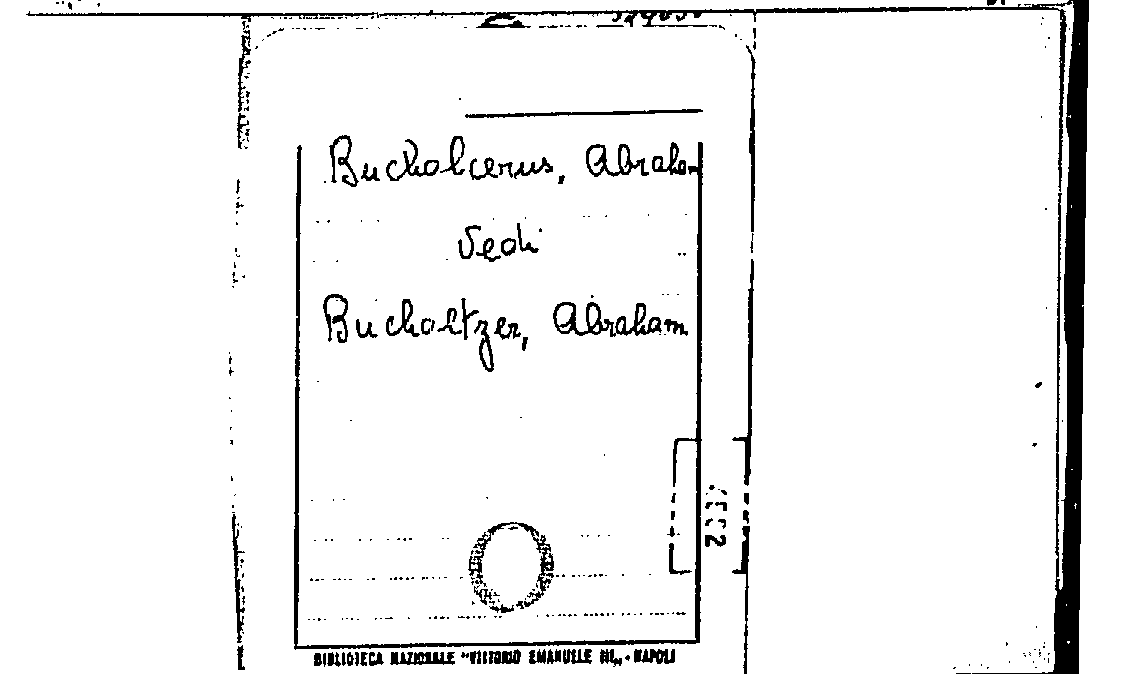 Bucholcerus, Abraham
Vedi
Bucholtzer, Abraham
BIBLIOTECA NAZIONALE "VITTORIO EMANUELE III„ - NAPOLI